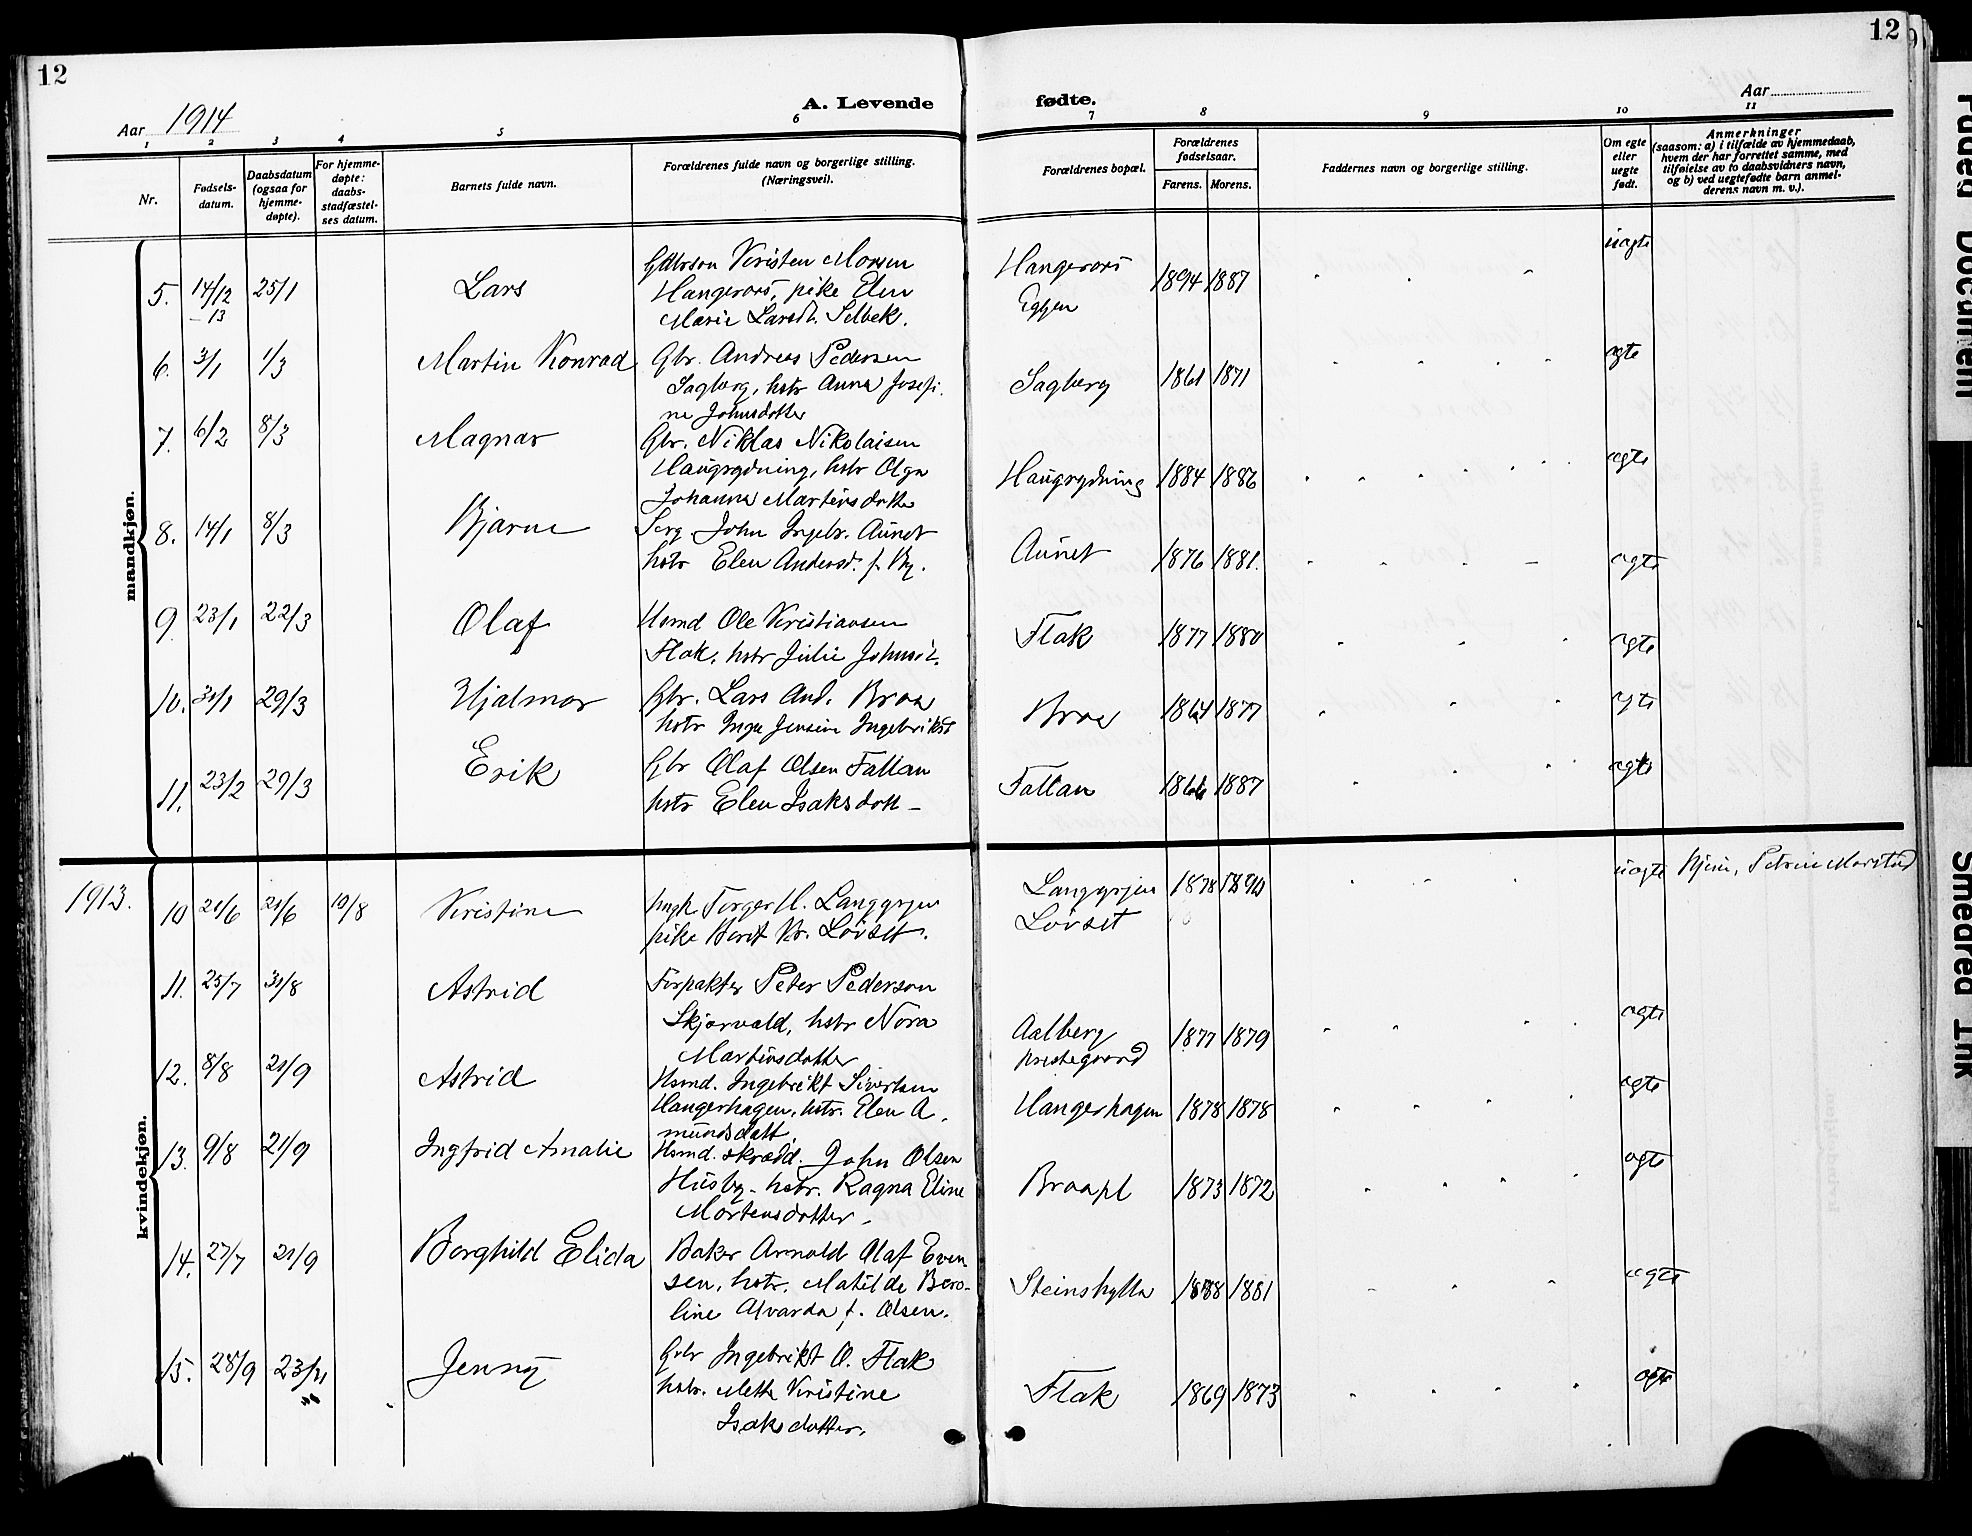 12
12
Aar 1914
A. Levende
fødte.
Aar
1 2 3 4 5 6
7 8 9 10 11
Nr.
Fødsels-
datum.
Daabsdatum
(ogsaa for
hjemme-
døpte).
For hjemme-
døpte:
daabs-
stadfæstel-
ses datum.
Barnets fulde navn.
Forældrenes fulde navn og borgerlige stilling.
(Næringsvei).
Forældrenes bopæl.
Forældrenes
fødselsaar.
Farens. Morens.
Faddernes navn og borgerlige stilling.
Om egte
eller
uegte
født.
Anmerkninger
(saasom: a) i tilfælde av hjemmedaab,
hvem der har forrettet samme, med
tilføielse av to daabsvidners navn,
og b) ved uegtefødte barn anmel-
derens navn m. v.).
mandkjøn.
5. 14/12 -13 25/1 Lars
Kristen
pike Elen
Marie Larsdt. Selbek.
Eggen
1894 1887 uagte
6. 3/1 1/3 Martin Konrad
Gbr. Andreas Pedersen
Sagberg, hstr Anna Josefi-
ne Johnsdotter
Sagberg 1861 1871 agte
7. 6/2 8/3 Magnar
Gbr. Niklas Nikolaisen
Haugrydning, hstr Olga
Johanna Martinsdotter
Haugrydning 1884 1886 agte
8. 14/1 8/3 Bjarne
Serg. John Ingebr. Aunet
hstr Elen Andersd. f. By.
Aunet 1876 1881. agte
9. 23/1 22/3 Olaf
Hsmd Ole Kristiansen
Flak, hstr Julie Johnsd.
Flak 1877 1880 agte
10. 31/1 29/3 Hjalmar
Gbr. Lars And. Braa
hstr Inga Jensine Ingebriktsd
Braa 1864 1877 agte
11. 23/2 29/3 Erik
Gbr Olaf Olsen Fallan
hstr Elen Isaksdott -
Fallan 1866 1887 agte
kvindekjøn.
1913.
10 21/6 21/6 10/8 Kristine
Torger H. Langgrjen
pike Berit Kr. Løvset.
Langgrjen
Løvset
1878 uagte Hjem, Petrine Marstad
11. 25/7 31/8 Astrid
Forpakter Peter Pederson
Skjørvold, hstr Nora
Martinsdotter
Aalberg
prestegaard
1877 1879 agte
12. 8/8 21/9 Astrid
Hsmd. Ingebrikt Sivertsen
Hangerhagen, hstr. Elen A-
mundsdatt
Hangerhagen 1878 1878 agte
13. 9/8 21/9 Ingfrid Amalie
Hsmd. skrædd. John Olsen
Husby. hstr. Ragna Eline
Mortensdotter.
Braapl 1873 1872 agte
14. 27/7 21/9 Borghild Elida
Baker Arnold Olaf Even
sen, hstr. Matilde Bero-
line Alvarda f. Olsen.
Steinshylla 1888 1881 agte
15. 28/9 23/11 Jenny
Gbr Ingebrikt O. Flak
hstr. Mette Kristine
Isaksdotter.
Flak 1869 1873 agte
Faded Document
Smeared Ink